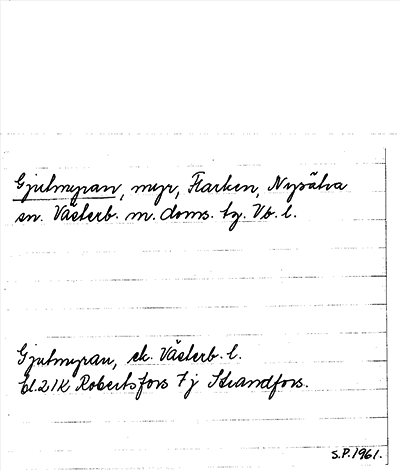 Gjutmyran, myr, Flarken, Nysätra
sn. Västerb. m. doms. tg. Vb. l.
Gjutmyran, ek. Västerb. l.
bl. 21K Robertsfors 7j Strandfors.
S.P. 1961.